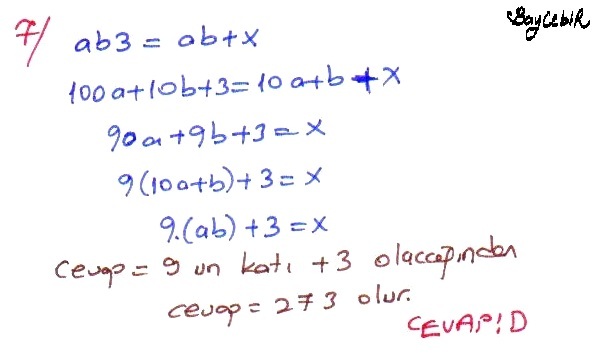 BayCebiR
7/ ab3 = ab+x
100a+10b+3=10a+b+x
90a+9b+3=x
9(10a+b)+3=x
9.(ab)+3=x
Cevap = 9 un katı +3 olaccağından
cevap=273 olur.
CEVAP:D